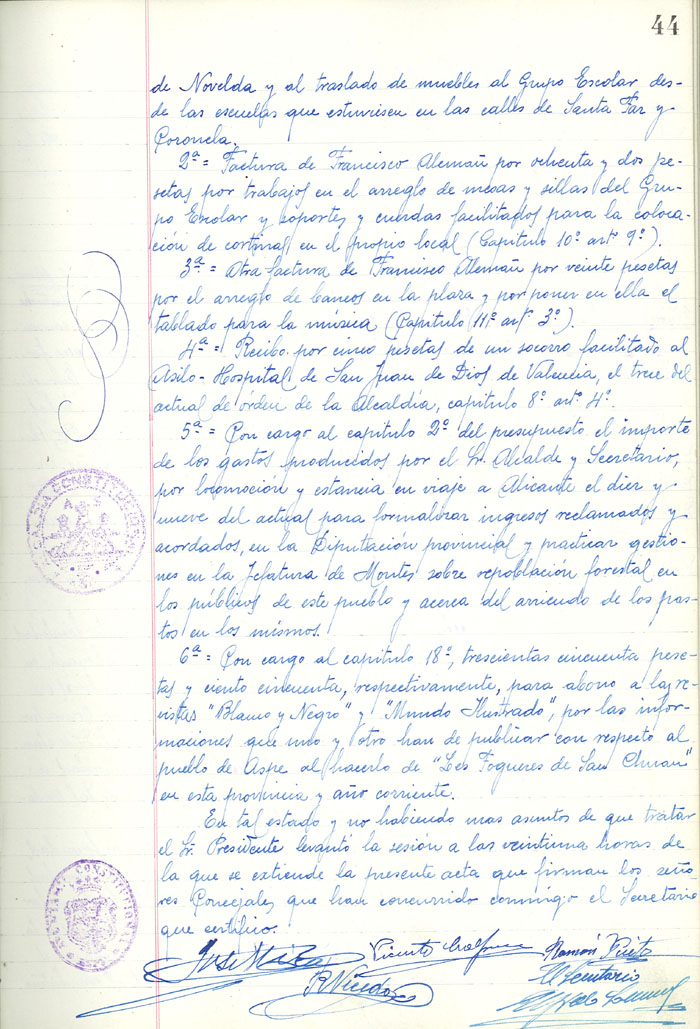 44
de Novelda y al traslado de muebles al Grupo Escolar des-
de las escuelas que estuviesen en las calles de Santa Faz y
Coronela.
2ª = Factura de Francisco Alemañ por ochenta y dos pe-
setas por trabajos en el arreglo de mesas y sillas del Gru-
po Escolar y soportes y cuerdas facilitados para la coloca-
ción de cortinas en el propio local (Capitulo 10º artº 9º).
3ª = Otra factura de Francisco Alemañ por veinte pesetas
por el arreglo de bancos en la plaza y por poner en ella el
tablado para la música (Capitulo 11º artº 3º).
4ª = Recibo por cinco pesetas de un socorro facilitado al
Asilo-Hospital de San Juan de Dios de Valencia, el trece del
actual de órden de la Alcaldia, capitulo 8º artº 4º.
5ª = Con cargo al capitulo 2º del presupuesto el importe
de los gastos producidos por el Sr. Alcalde y Secretario,
por locomoción y estancia en viaje a Alicante el diez y
nueve del actual para formalizar ingresos reclamados y
acordados, en la Diputación provincial y practicar gestio-
nes en la Jefatura de Montes sobre repoblación forestal en
los públicos de este pueblo y acerca del arriendo de los pas-
tos en los mismos.
6ª = Con cargo al capitulo 18º, trescientas cincuenta pese-
tas y ciento cincuenta, respectivamente, para abono a las re-
vistas "Blanco y Negro" y "Mundo Ilustrado", por las infor-
maciones que uno y otro han de publicar con respecto al
pueblo de Aspe al hacerlo de "Les Fogueres de San Chuan"
en esta provincia y año corriente.
En tal estado y no habiendo mas asuntos de que tratar
el Sr. Presidente levantó la sesión a las veintiuna horas de
la que se extiende la presente acta que firman los seño-
res Concejales que han concurrido conmigo el Secretario
que certifico.
Vicente
Ramón Prieto
El Secretario